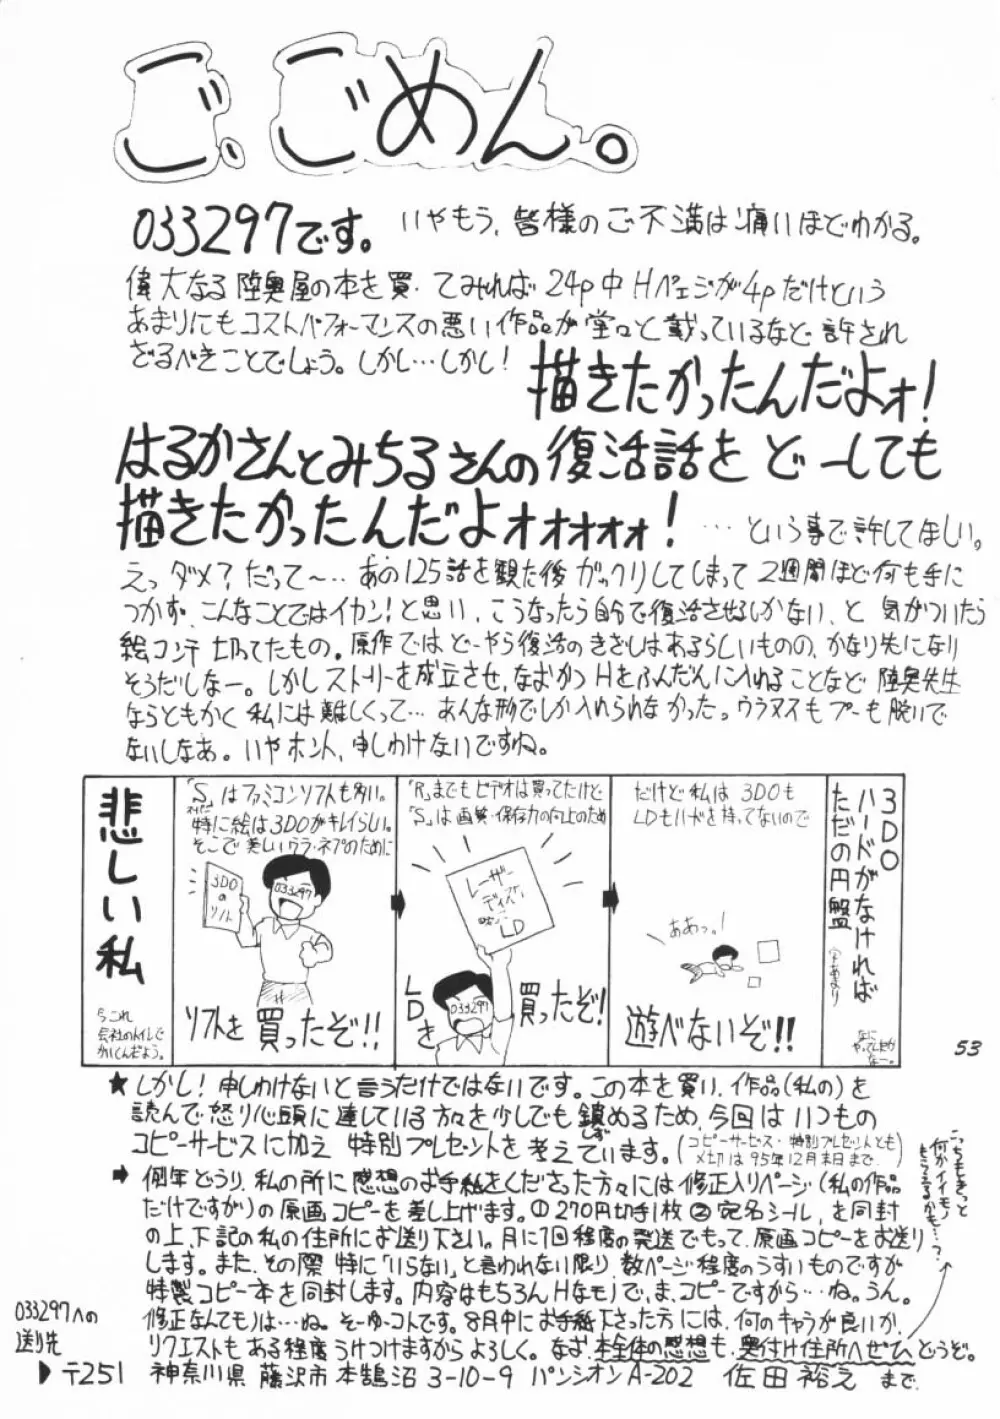 ご、ごめん。
033297です。いやもう、皆様のご不満は痛いほどわかる。
偉大なる陸奥屋の本を買ってみれば24p中Hペェジが4pだけという
あまりにもコストパフォーマンスの悪い作品が堂々と載っているなど許され
ざるべきことでしょう。しかし…しかし!
描きたかったんだよォ!
はるかさんとみちるさんの復活話をどーしても
描きたかったんだよォォォォォ!…という事で許してほしい。
えっダメ?だって〜…あの125話を観た後ガックリしてしまって2週間ほど何も手に
つかず、こんなことではイカン!と思い、こうなったら自分で復活させるしかない、と気がついたら
絵コンテ切ってたもの。原作ではどーやら復活のきざしはあるらしいものの、かなり先になり
そうだしなー。しかしストーリーを成立させ、なおかつHをふんだんに入れることなど陸奥先生
ならともかく私には難しくって…あんな形でしか入れられなかった。ウラヌスもプーも脱いで
ないしなあ。いやホント、申しわけないですね。
悲しい私
今これ
会社のトイレで
かいてんだよう。
「S」はファミコンソフトも多い。
特に絵は3DOがキレイらしい。
そこで美しいウラ・ネプのために
3DO
の
ソフト
033297
ソフトを買ったぞ!!
「R」までもビデオは買ってたけど
「S」は画質・保存力の向上のため
レーザー
ディスク
LD
033297
LDを買ったぞ!
だけど私は3DOも
LDもハードを持ってないので
ああっ。!
遊べないぞ!!
3DO
ハードがなければ
ただの円盤
(字あまり)
なに
やってんだか
なー。
53
★しかし!申しわけないと言うだけではないです。この本を買い、作品(私の)を
読んで怒り心頭に達している方々を少しでも鎮めるため、今回はいつもの
しず
コピーサービスに加え特別プレゼントを考えています。(コピーサービス・特別プレゼントとも
〆切は95年12月末日まで)
➡例年どうり、私の所に感想のお手紙をくださった方々には修正入りページ(私の作品
だけですが)の原画コピーを差し上げます。①270円切手1枚②宛名シール、を同封
の上、下記の私の住所にお送り下さい。月に1回程度の発送でもって、原画コピーをお送り
します。また、その際特に「いらない」と言われない限り、数ページ程度のうすいものですが
特製コピー本を同封します。内容はもちろんHなモノで、ま、コピーですから…ね。うん。
修正なんてものは…ね。そーゆーコトです。8月中にお手紙下さった方には、何のキャラが良いか、
リクエストもある程度うけつけますからよろしく。なお、本全体の感想も、奥付け住所へぜひどうぞ。
こっちもきっと
何かイイモノ
もらえるかも…?
033297への
送り先
▶〒251 神奈川県藤沢市本鵠沼3-10-9 パンシオンA-202 佐田裕え まで